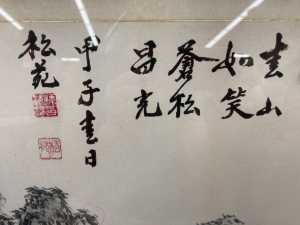 春山
如笑
蒼松
昌光
甲子春日
松苑